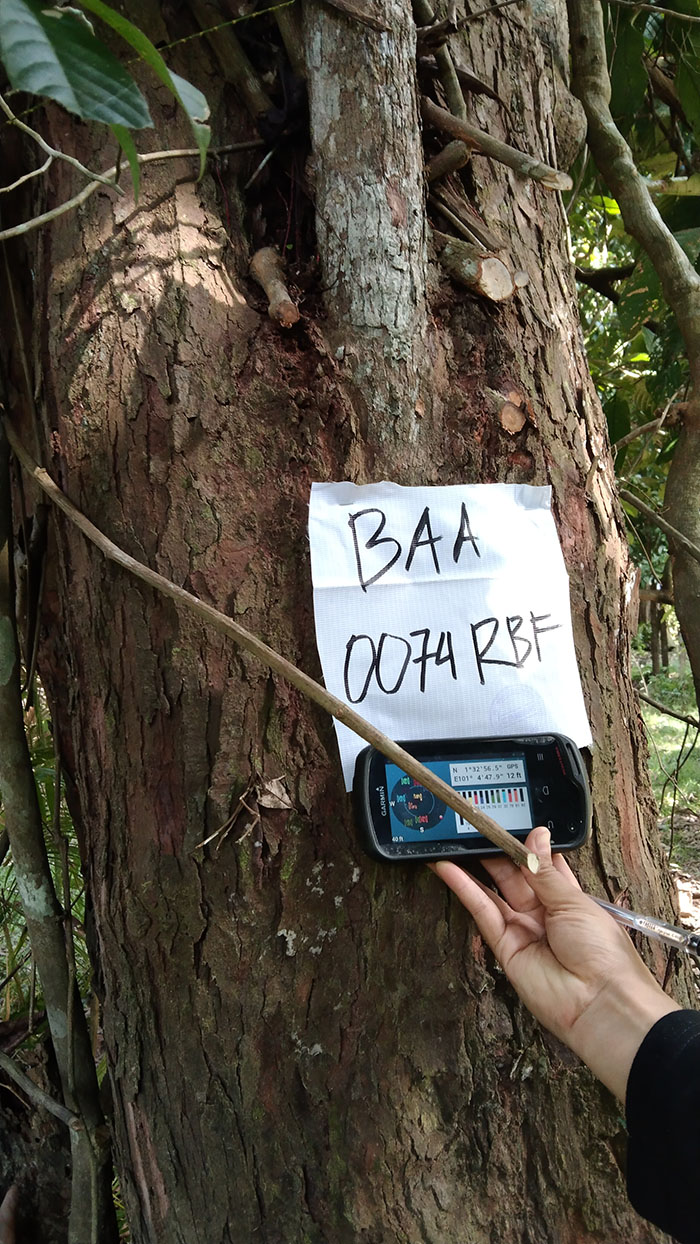 BAA
0074 RBF
GARMIN
N 1°32'56.5" GPS
E101° 4'47.9" 12 ft
W
S
40 ft